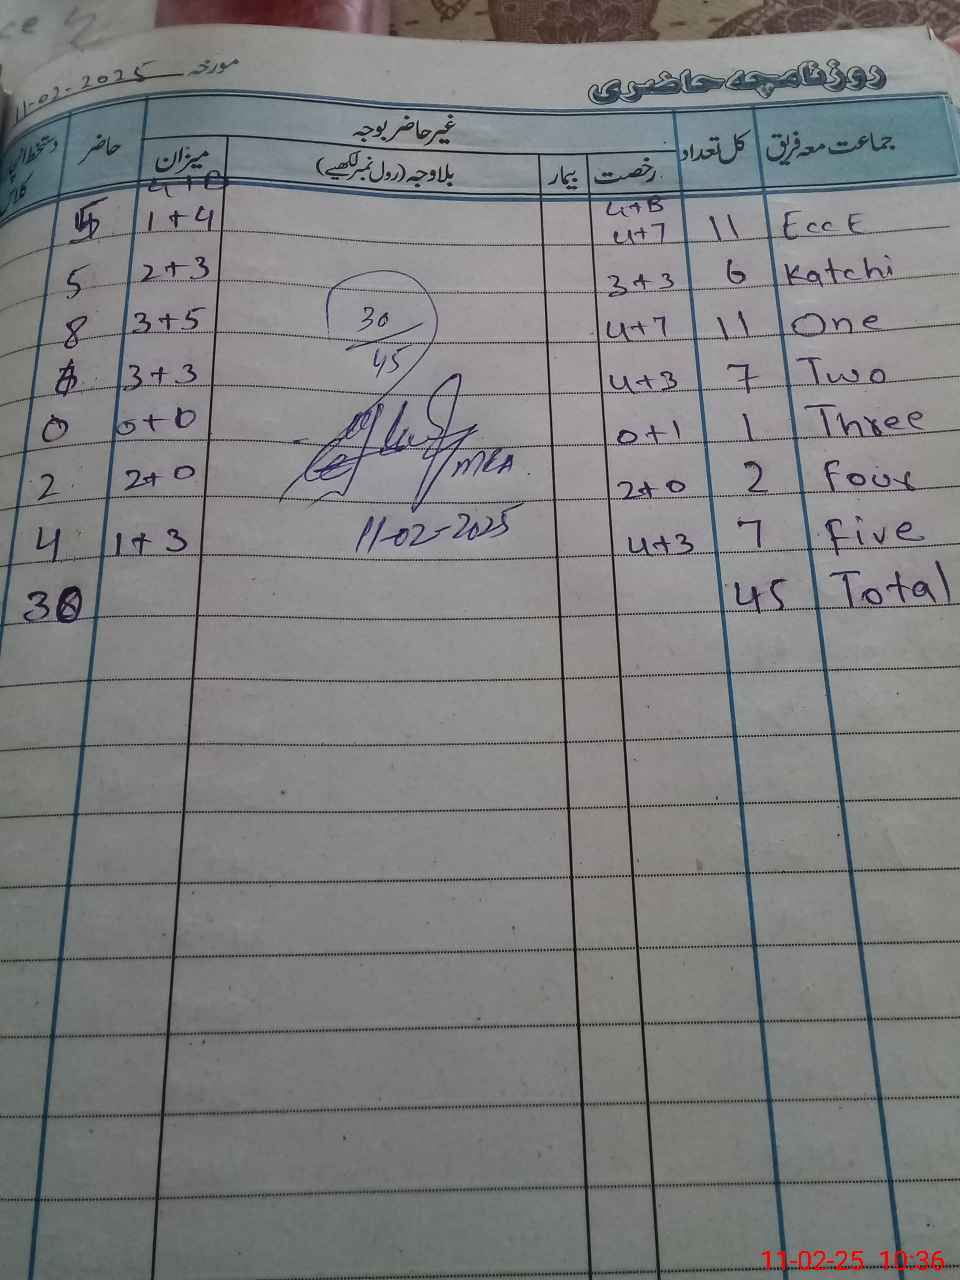 روزنامچہ حاضری
مورخہ 11-02-2025
جماعت معہ فریق کل تعداد غیر حاضر بوجہ حاضر
رخصت بیمار بلاوجہ (رول نمبر لکھیے) میزان
G+B G+B
EccE 11 4+7 1+4 5
Katchi 6 3+3 2+3 5
One 11 4+7 3+5 8
Two 7 4+3 3+3 6
Three 1 0+1 0+0 0
Four 2 2+0 2+0 2
Five 7 4+3 1+3 4
Total 45 30
30
45
MEA
11-02-2025
11-02-25 10:36